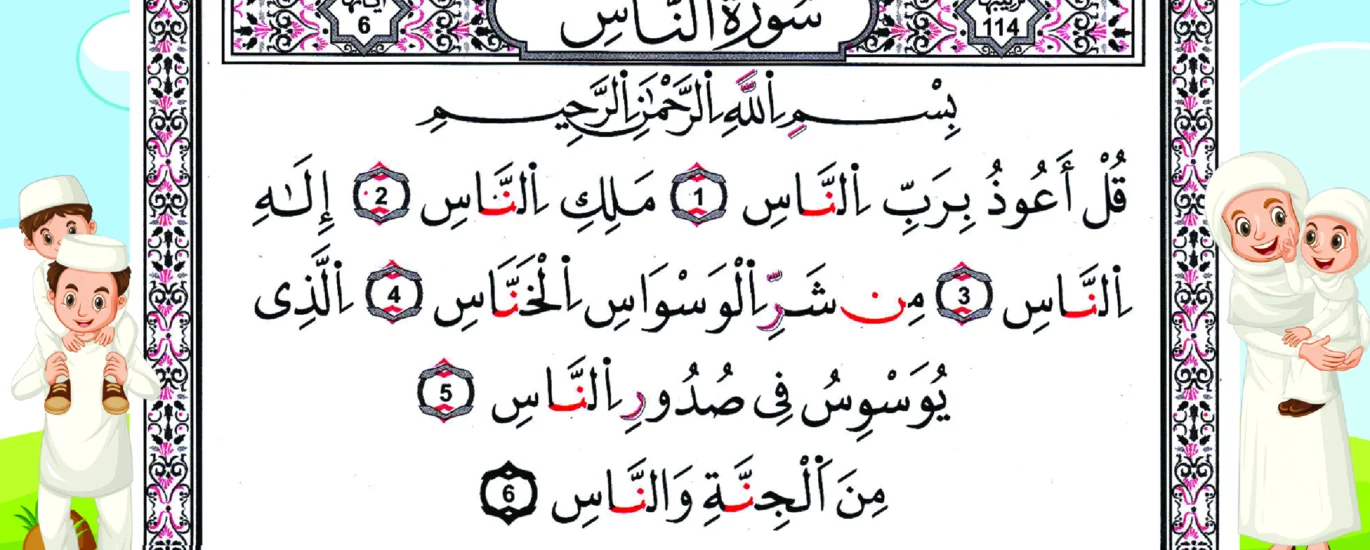 ترتيبها 114 سُورَةُ النَّاسِ آياتها 6
بِسْمِ اِ۬للَّهِ اِ۬لرَّحْمَٰنِ اِ۬لرَّحِيمِ
قُلْ أَعُوذُ بِرَبِّ اِ۬لنَّاسِ 1 مَلِكِ اِ۬لنَّاسِ 2 إِلَٰهِ
اِ۬لنَّاسِ 3 مِن شَرِّ اِ۬لْوَسْوَاسِ اِ۬لْخَنَّاسِ 4 اِ۬لَّذِى
يُوَسْوِسُ فِى صُدُورِ اِ۬لنَّاسِ 5
مِنَ اَ۬لْجِنَّةِ وَالنَّاسِ 6